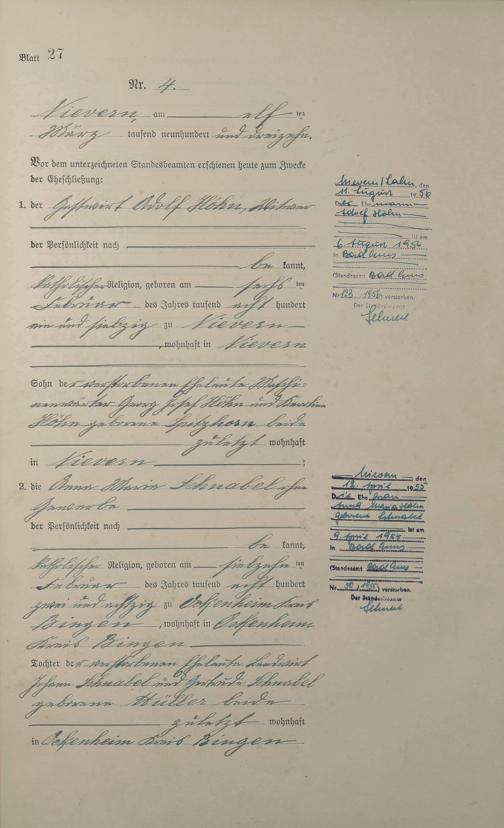 Blatt 27
Nr. 4.
Nievern, am elf ten
März tausend neunhundert und dreizehn.
Vor dem unterzeichneten Standesbeamten erschienen heute zum Zwecke
der Eheschließung:
1. der Gastwirt Adolf Höhn, Witwer
der Persönlichkeit nach
be kannt,
katholischer Religion, geboren am sechs ten
Februar des Jahres tausend acht hundert
ein und siebzig zu Nievern
, wohnhaft in Nievern
Sohn der verstorbenen Eheleute Maschi-
nenwärter Georg Josef Höhn und Karoline
Höhn geborene Spitzhorn beide
zuletzt wohnhaft
in Nievern ;
2. die Anna Maria Schnabel ohne
Gewerbe
der Persönlichkeit nach
be kannt,
katholischer Religion, geboren am siebzehn ten
Februar des Jahres tausend acht hundert
zwei und achtzig zu Ockenheim Kreis
Bingen , wohnhaft in Ockenheim
Kreis Bingen
Tochter der verstorbenen Eheleute Landwirt
Johann Schnabel und Gertrude Schnabel
geborene Müller beide
zuletzt wohnhaft
in Ockenheim Kreis Bingen
Nievern/Lahn, den
11. August 1956
Der Ehemann
Adolf Höhn
ist am
6. August 1956
in Bad Ems
(Standesamt Bad Ems
Nr. 123 /1956) verstorben.
Der Standesbeamte
Nievern den
12. April 1955
Die Ehefrau
Anna Maria Höhn
geborene Schnabel
ist am
9. April 1955
in Bad Ems
(Standesamt Bad Ems
Nr. 50 /1955) verstorben.
Der Standesbeamte